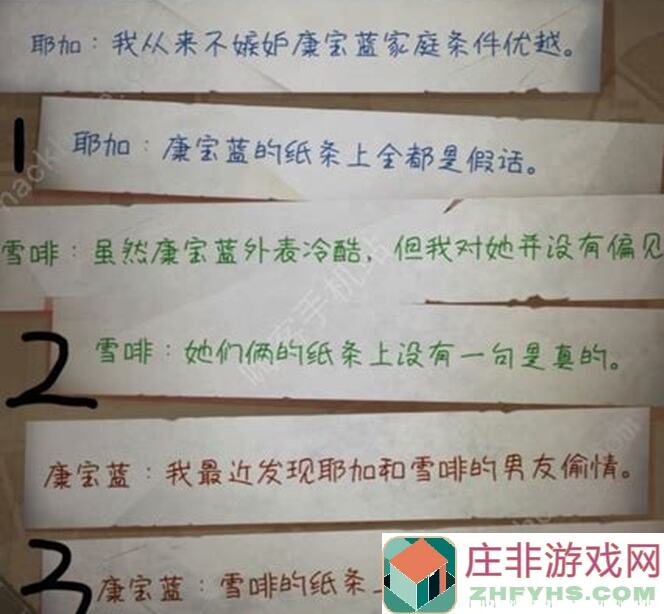 耶加：我从来不嫉妒康宝蓝家庭条件优越。
1
耶加：康宝蓝的纸条上全都是假话。
雪啡：虽然康宝蓝外表冷酷，但我对她并没有偏见
2
雪啡：她们俩的纸条上没有一句是真的。
康宝蓝：我最近发现耶加和雪啡的男友偷情。
3
康宝蓝：雪啡的纸条
庄非游戏网
ZHFYHS.COM